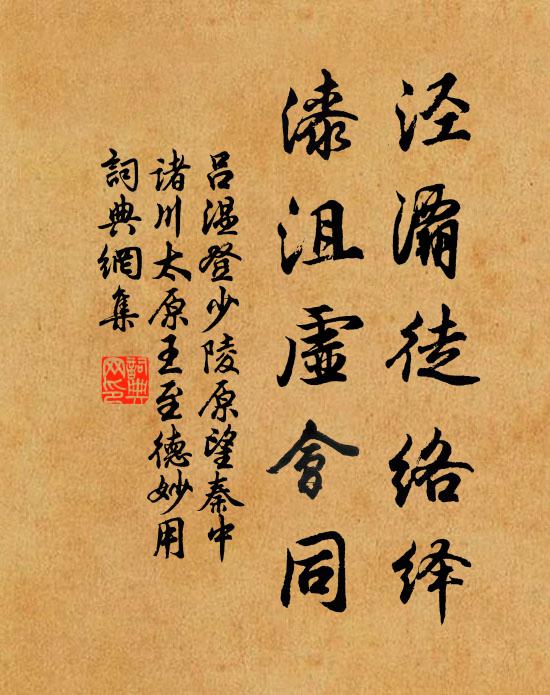 泾灞徒络绎
漆沮虚會同
吕温登少陵原望秦中
诸川太原王至德妙用
詞典網集
詞典网印